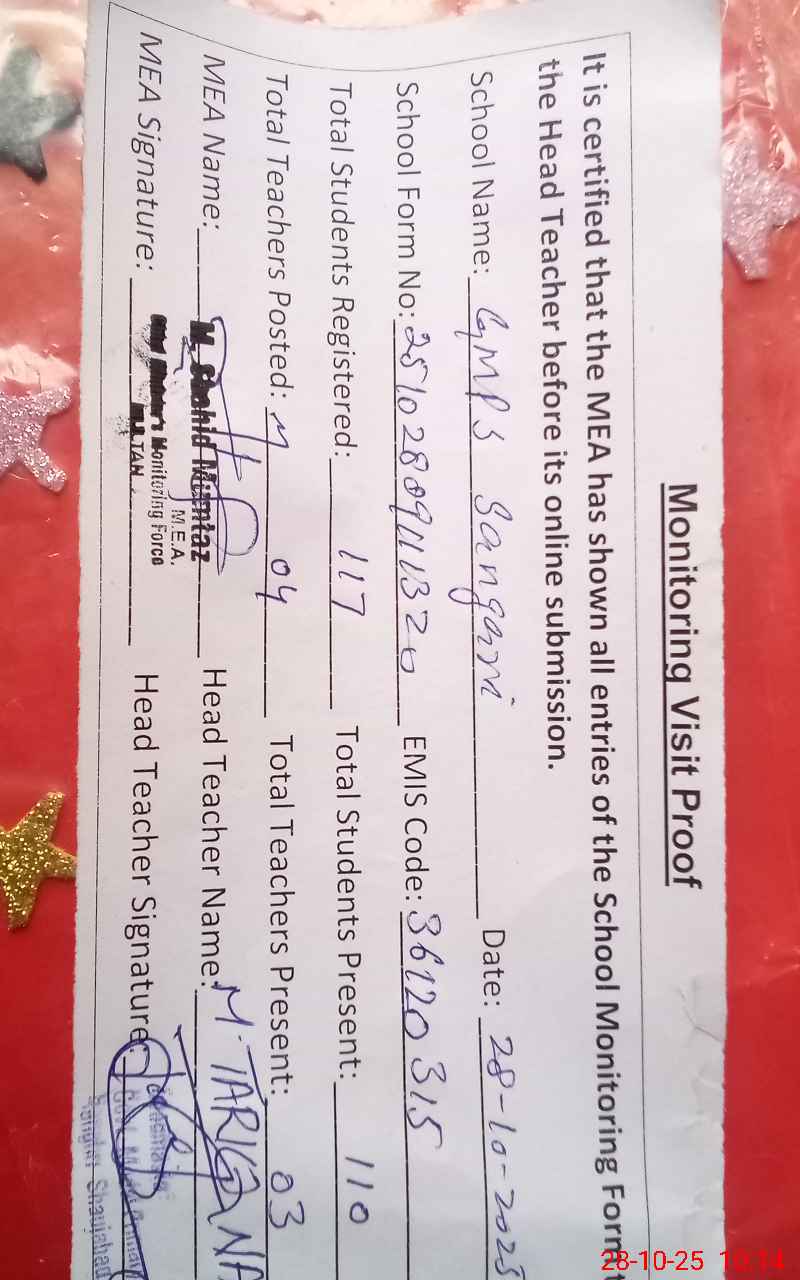 Monitoring Visit Proof
It is certified that the MEA has shown all entries of the School Monitoring Form t
the Head Teacher before its online submission.
School Name: GMPS Sangani Date: 28-10-2025
School Form No: EMIS Code: 36120315
Total Students Registered: 117 Total Students Present: 110
Total Teachers Posted: 04 Total Teachers Present: 03
MEA Name: M. Shahid Mumtaz Head Teacher Name: M. TARIQ
M.E.A.
MEA Signature: Monitoring Force Head Teacher Signature:
MULTAN
28-10-25 10:14